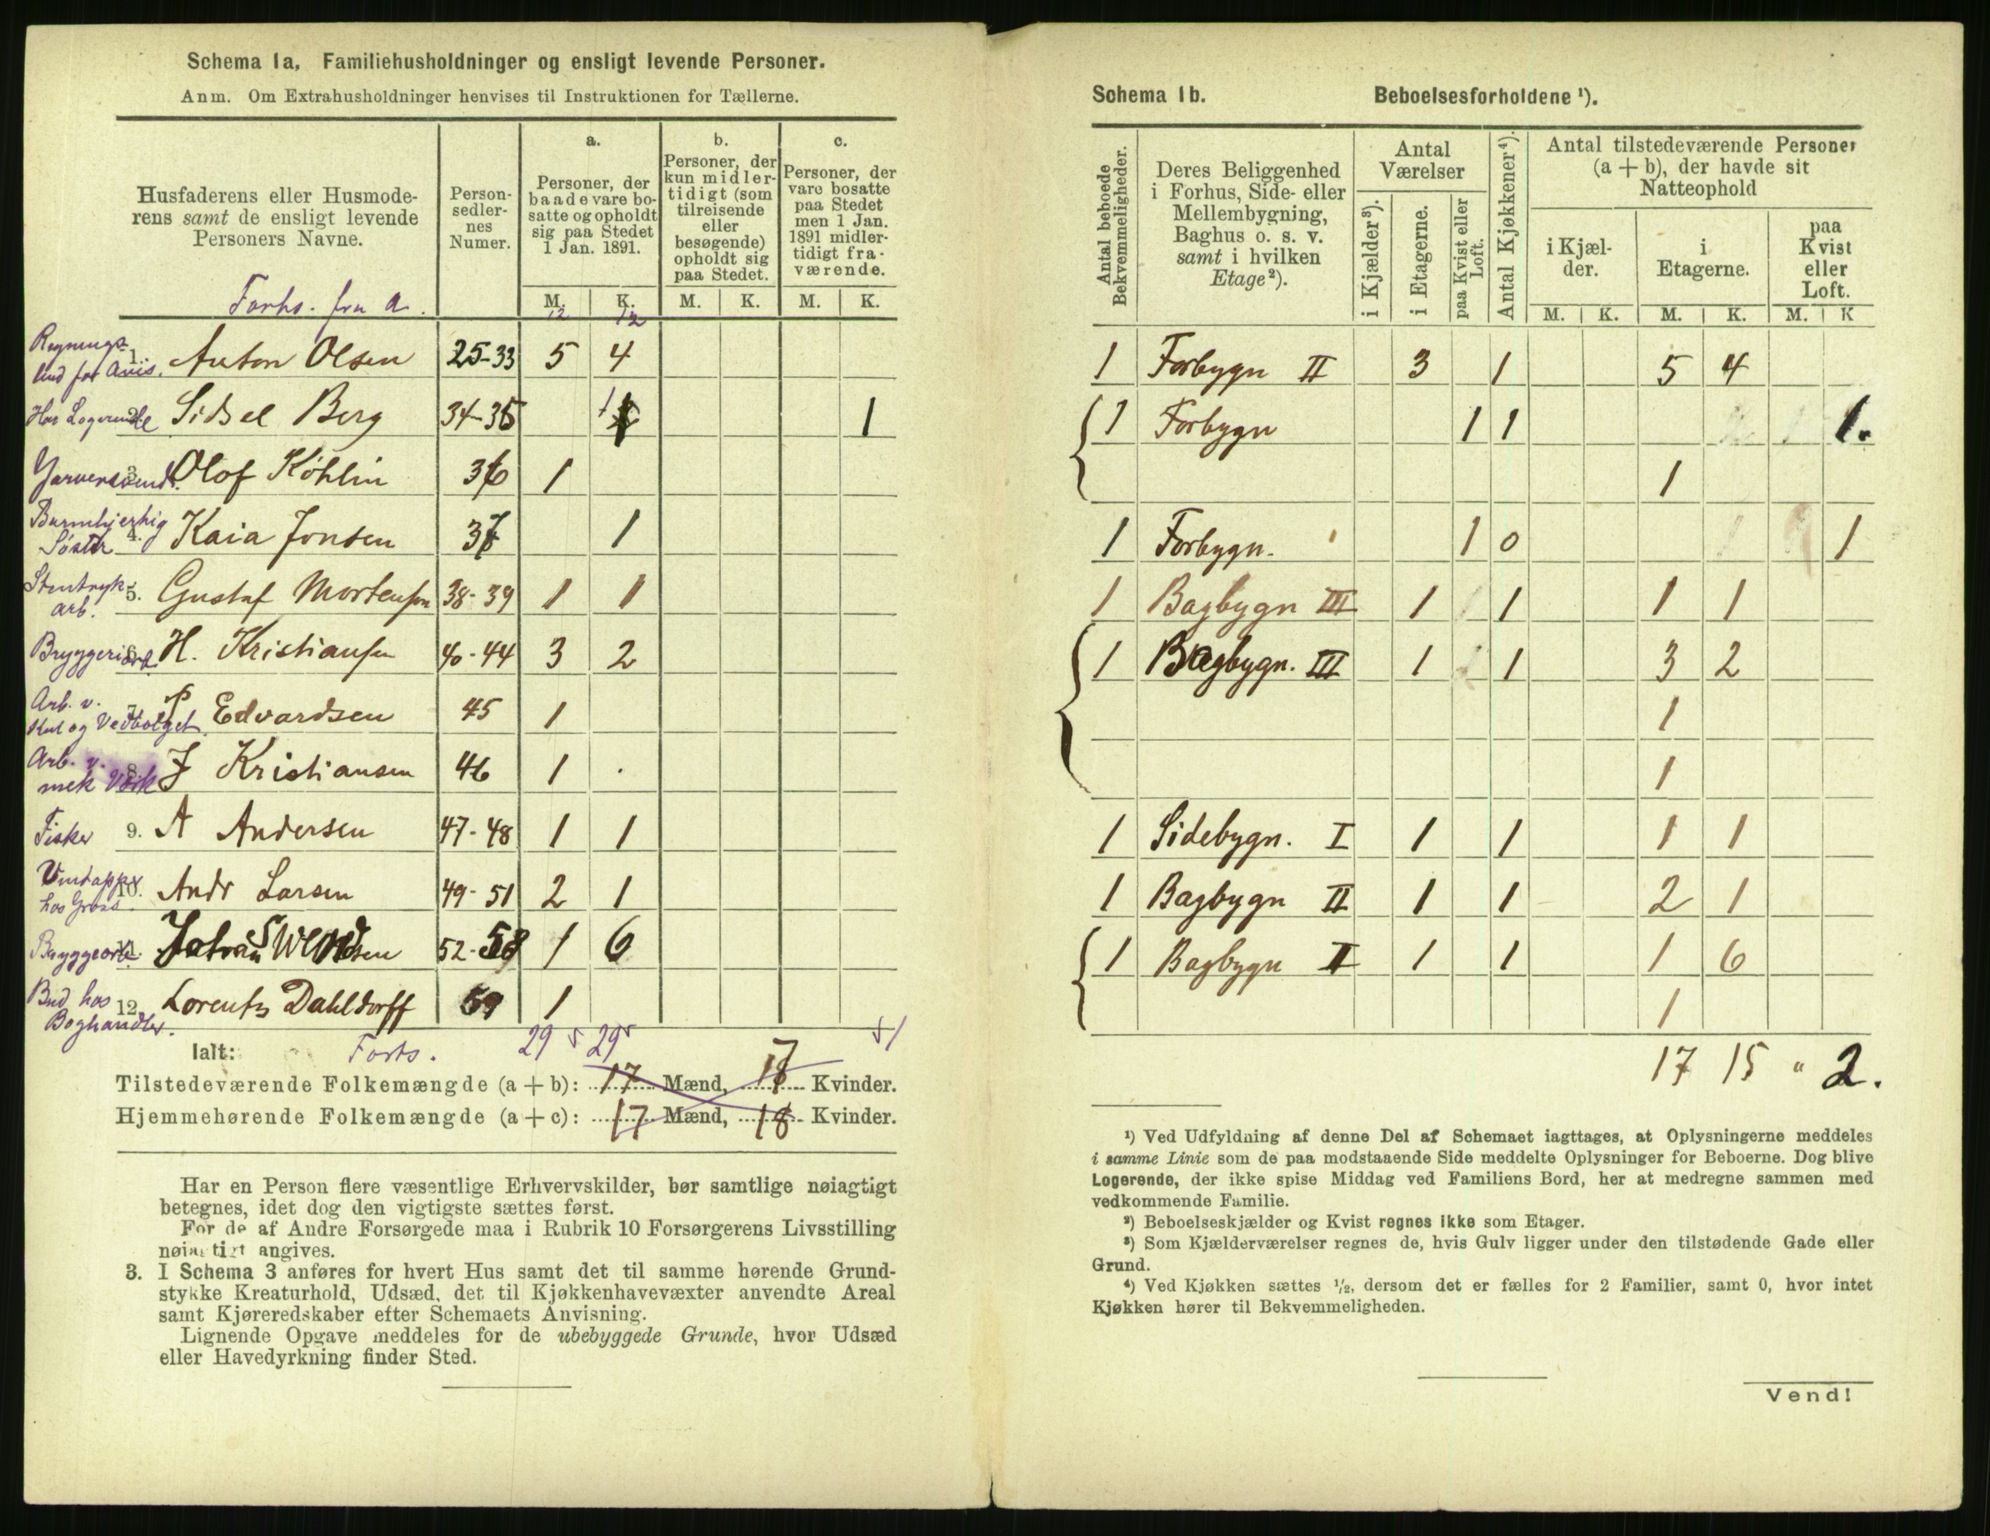 Schema 1a, Familiehusholdninger og ensligt levende Personer.
Anm. Om Extrahusholdninger henvises til Instruktionen for Tællerne.
Husfaderens eller Husmode-
rens samt de ensligt levende
Personers Navne.
Forts. fra a.
Person-
sedler-
nes
Numer.
a.
Personer, der
baade vare bo-
satte og opholdt
sig paa Stedet
1 Jan. 1891.
b.
Personer, der
kun midler-
tidigt (som
tilreisende
eller
besøgende)
opholdt sig
paa Stedet.
c.
Personer, der
vare bosatte
paa Stedet
men 1 Jan.
1891 midler-
tidigt fra-
værende.
M. K. M. K. M. K.
12 12
1. Anton Olsen 25-33 5 4
Har Logerende 2. Sidsel Berg 34-35 1 1
Garversvend 3. Olof Köhlin 36 1
Barmhjertig
Søster 4. Kaia Jonsen 37 1
Stentryk-
arb. 5. Gustaf Mortensen 38-39 1 1
Bryggeriarb. 6. H. Kristiansen 40-44 3 2
Arb. v.
Kul og Vedbolget 7. P Edvardsen 45 1
Arb. v.
mek Værk 8. J Kristiansen 46 1
Fisker 9. A Andersen 47-48 1 1
Vintapper
hos Gross. 10. Andr Larsen 49-51 2 1
Bryggearb. 11. 52-58 1 6
Bud hos
Boghandler. 12. Lorents Dahldorff 59 1
Ialt: Forts. 29 29
Tilstedeværende Folkemængde (a+b): 17 Mænd, 17 Kvinder.
Hjemmehørende Folkemængde (a+c): 17 Mænd, 18 Kvinder.
Har en Person flere væsentlige Erhvervskilder, bør samtlige nøiagtigt
betegnes, idet dog den vigtigste sættes først.
For de af Andre Forsørgede maa i Rubrik 10 Forsørgerens Livsstilling
nøiagtigt angives.
3. I Schema 3 anføres for hvert Hus samt det til samme hørende Grund-
stykke Kreaturhold, Udsæd, det til Kjøkkenhavevæxter anvendte Areal
samt Kjøreredskaber efter Schemaets Anvisning.
Lignende Opgave meddeles for de ubebyggede Grunde, hvor Udsæd
eller Havedyrkning finder Sted.
Schema 1b. Beboelsesforholdene ¹).
Antal beboede
Bekvemmeligheder.
Deres Beliggenhed
i Forhus, Side- eller
Mellembygning,
Baghus o. s. v.
samt i hvilken
Etage²).
Antal
Værelser
i Kjælder³).
i Etagerne.
paa Kvist eller
Loft.
Antal Kjøkkener⁴).
Antal tilstedeværende Personer
(a + b), der havde sit
Natteophold
i Kjæl-
der.
i
Etagerne.
paa
Kvist
eller
Loft.
M. K. M. K. M. K
1 Forbygn II 3 1 5 4
1 Forbygn 1 1 1.
1
1 Forbygn. 1 0 1
1 Bagbygn III 1 1 1 1
1 Bagbygn. III 1 1 3 2
1
1
1 Sidebygn. I 1 1 1 1
1 Bagbygn II 1 1 2 1
1 Bagbygn II 1 1 1 6
1
17 15 " 2.
¹) Ved Udfyldning af denne Del af Schemaet iagttages, at Oplysningerne meddeles
i samme Linie som de paa modstaaende Side meddelte Oplysninger for Beboerne. Dog blive
Logerende, der ikke spise Middag ved Familiens Bord, her at medregne sammen med
vedkommende Familie.
²) Beboelseskjælder og Kvist regnes ikke som Etager.
³) Som Kjælderværelser regnes de, hvis Gulv ligger under den tilstødende Gade eller
Grund.
⁴) Ved Kjøkken sættes ½, dersom det er fælles for 2 Familier, samt 0, hvor intet
Kjøkken hører til Bekvemmeligheden.
Vend!